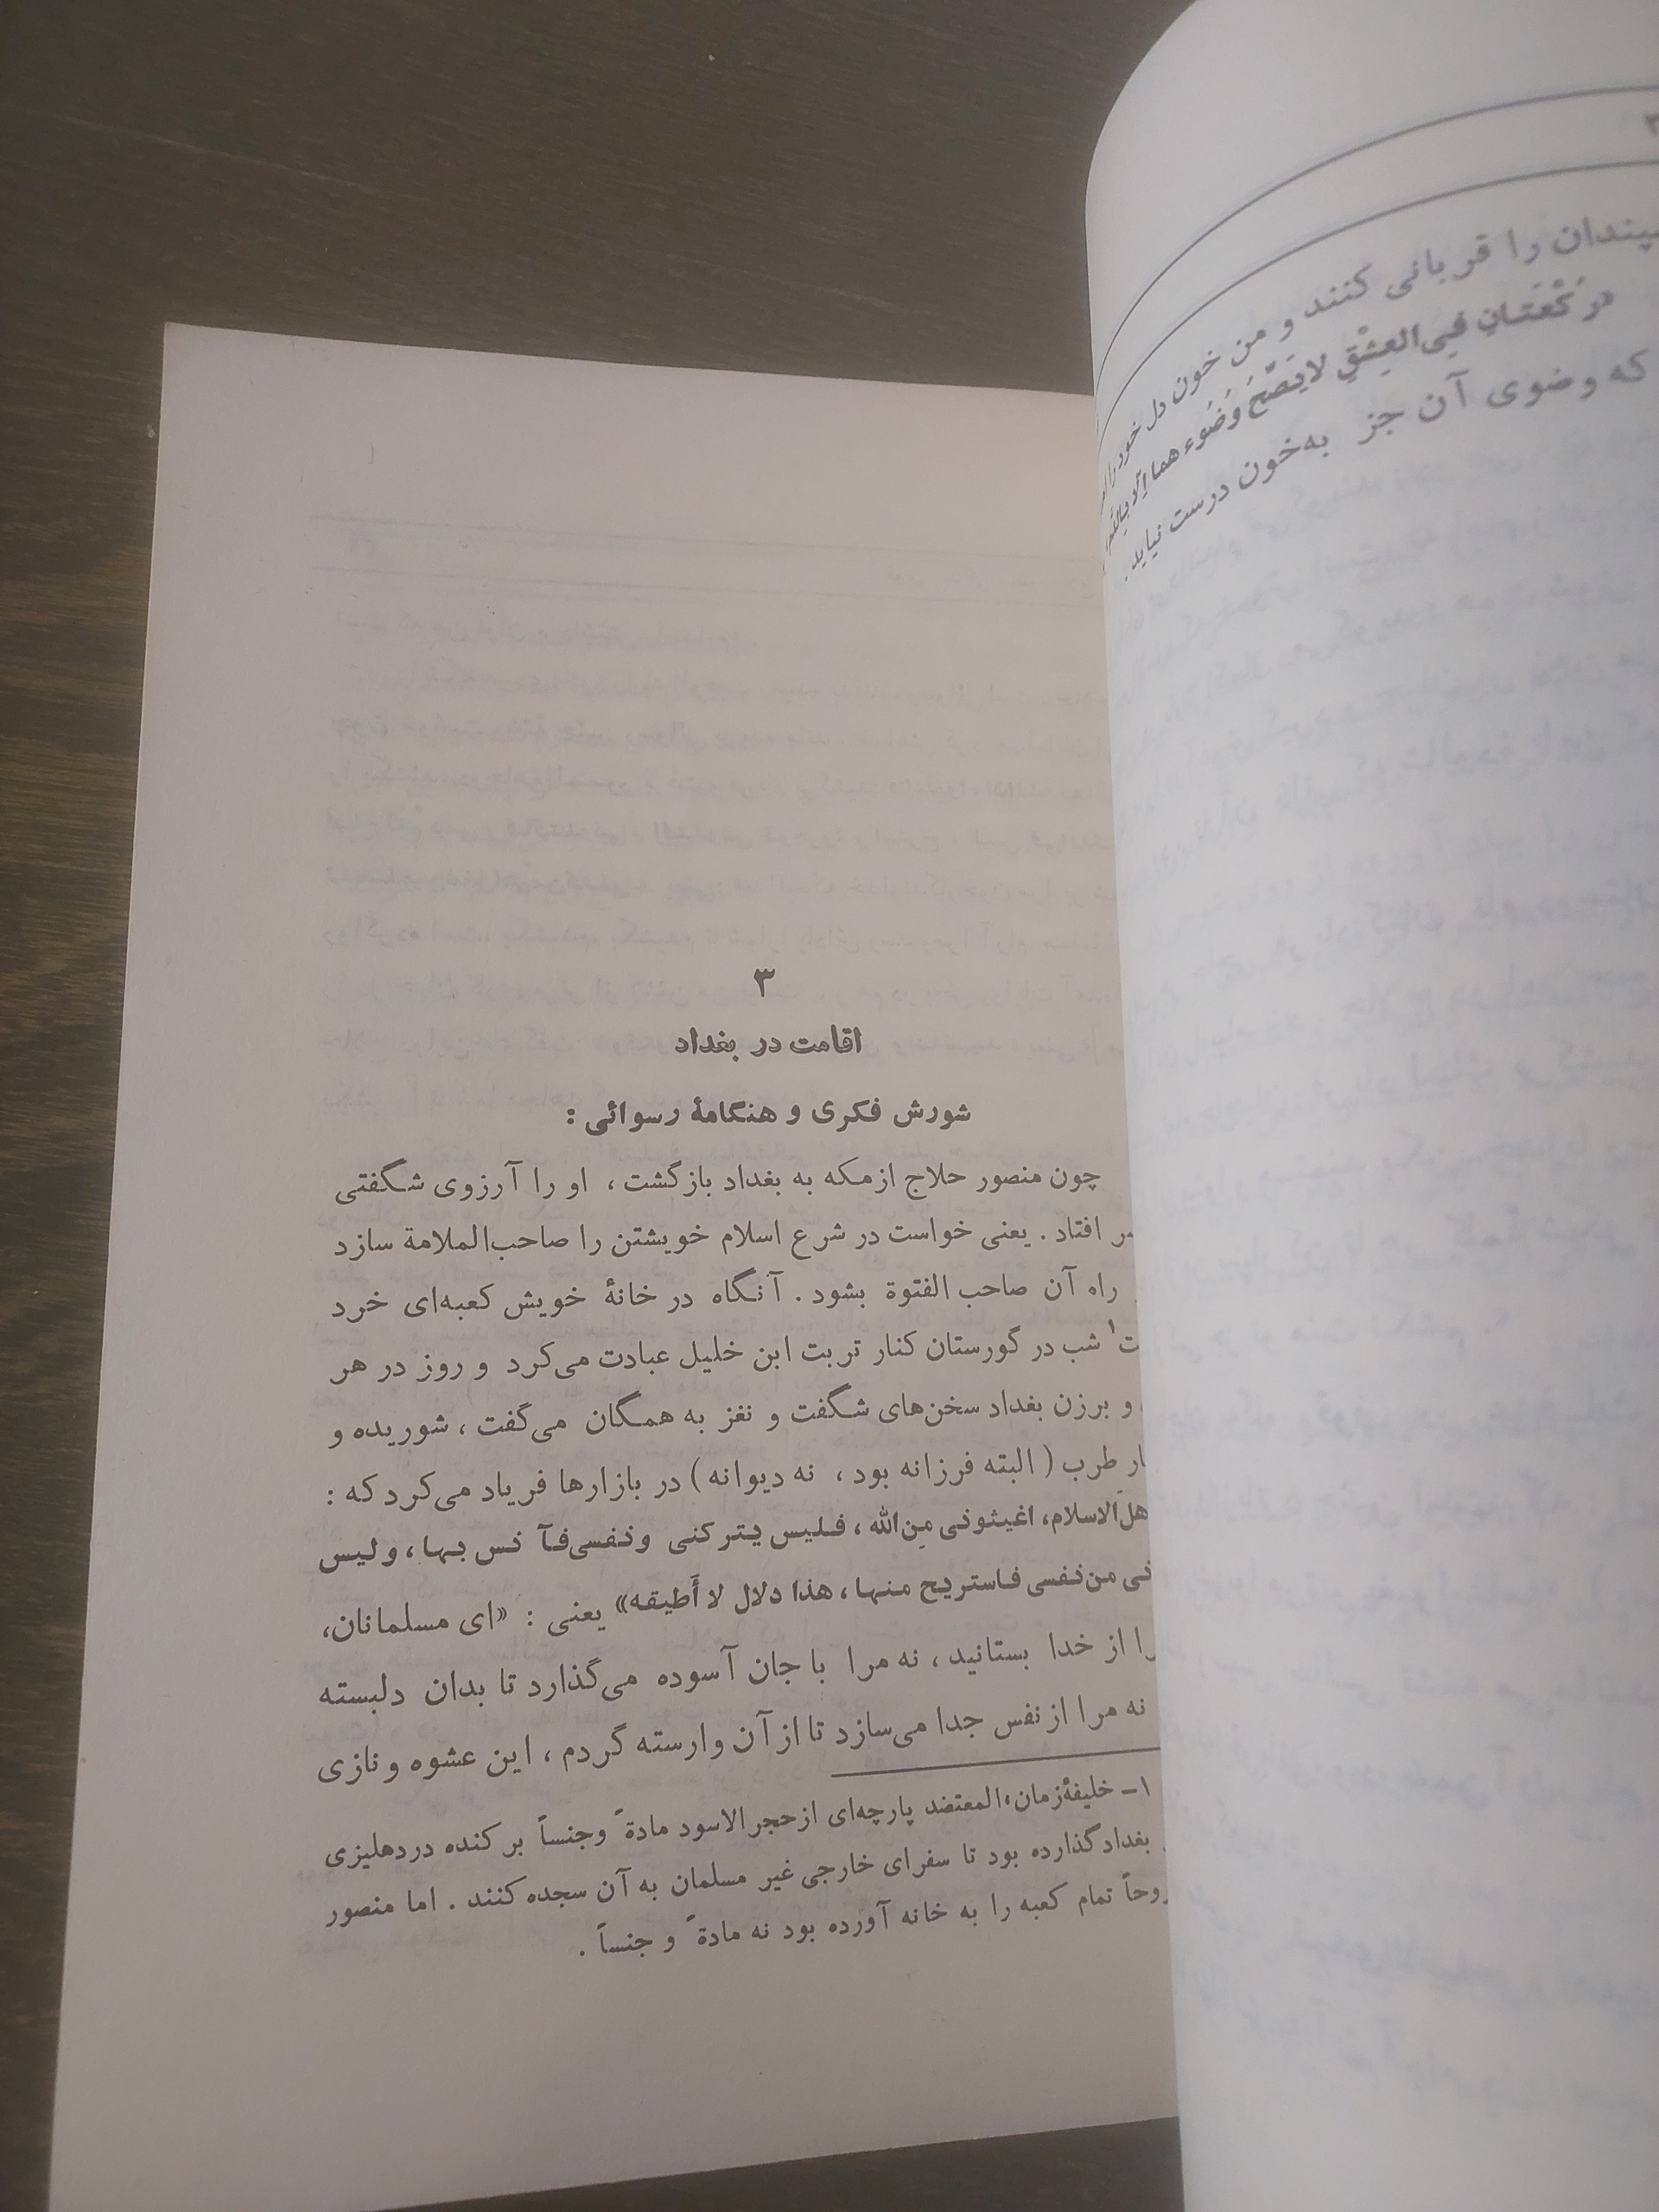 را قربانی کنند و من خون دل خود
رَکْعَتَانِ فِی‌العِشْقِ لایَصّحُ وُضُوء هما اِلّا
که وضوی آن جز به‌خون درست نیاید.
۳
اقامت در بغداد
شورش فکری و هنگامهٔ رسوائی :
چون منصور حلاج ازمکه به بغداد بازگشت، او را آرزوی شگفتی
افتاد . یعنی خواست در شرع اسلام خویشتن را صاحب‌الملامة سازد
راه آن صاحب الفتوة بشود . آنگاه در خانهٔ خویش کعبه‌ای خرد
۱ شب در گورستان کنار تربت ابن خلیل عبادت می‌کرد و روز در هر
و برزن بغداد سخن‌های شگفت و نغز به همگان می‌گفت ، شوریده و
طرب ( البته فرزانه بود ، نه دیوانه ) در بازارها فریاد می‌کرد که :
الاسلام، اغیثونی مِن‌الله ، فلیس یترکنی ونفسی‌فآ نس بها ، ولیس
من‌نفسی فاستریح منها ، هذا دلال لا أَطیقه» یعنی : «ای مسلمانان،
از خدا بستانید ، نه مرا با جان آسوده می‌گذارد تا بدان دلبسته
نه مرا از نفس جدا می‌سازد تا از آن وارسته گردم ، این عشوه و نازی
۱- خلیفهٔ‌زمان، المعتضد پارچه‌ای ازحجرالاسود مادةً وجنساً برکنده دردهلیزی
بغداد گذارده بود تا سفرای خارجی غیر مسلمان به آن سجده کنند . اما منصور
روحاً تمام کعبه را به خانه آورده بود نه مادةً و جنساً .